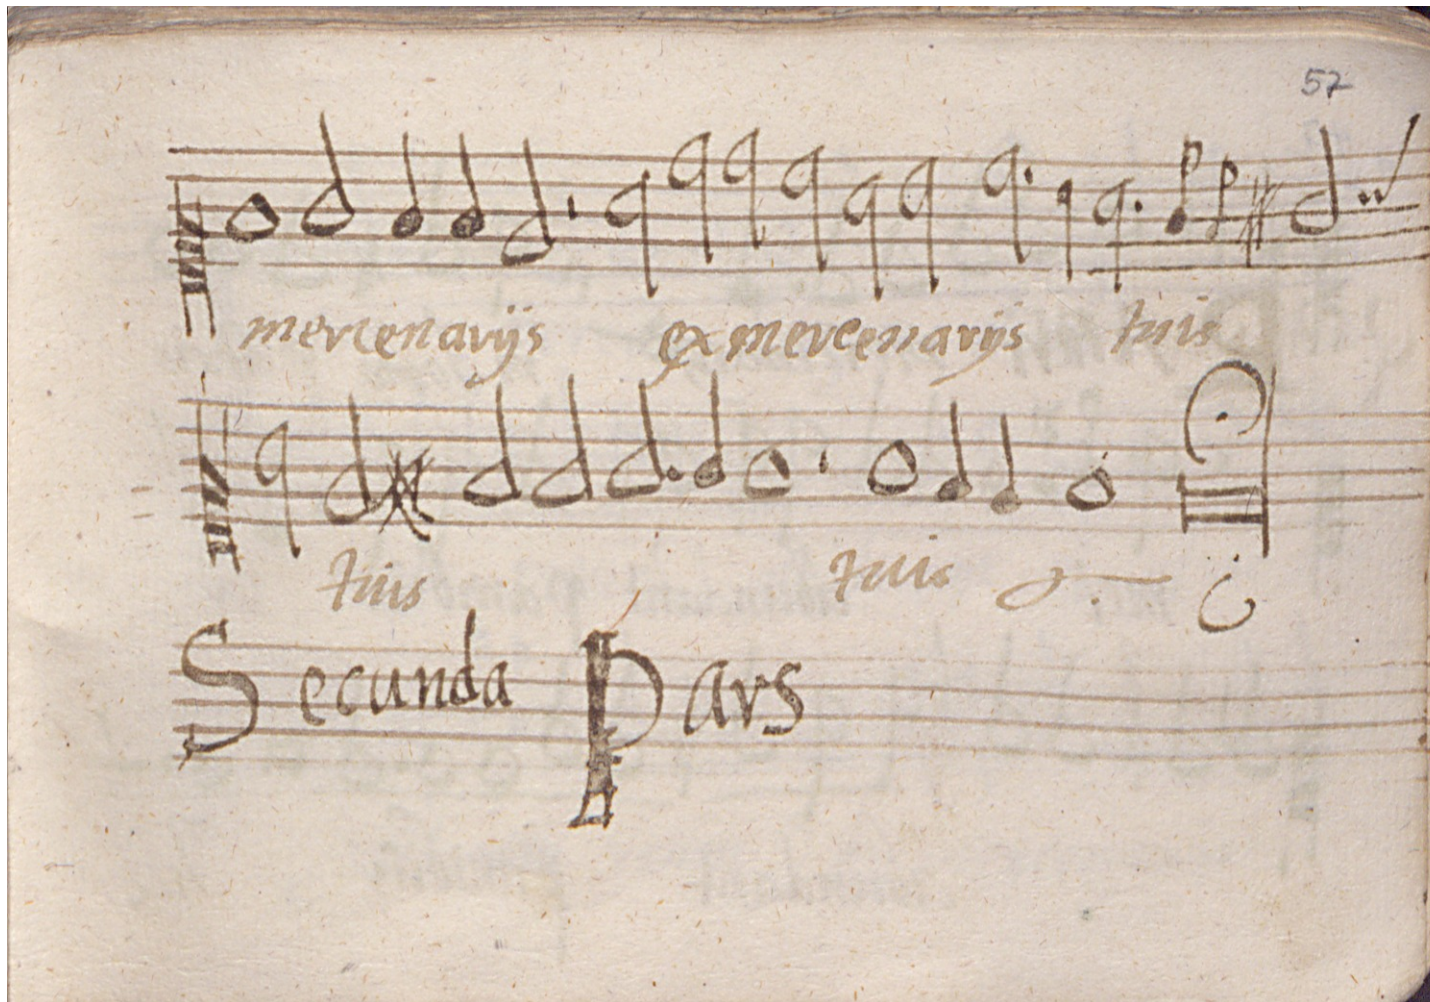 57
mercenarijs ex mercenarijs tuis
tuis tuis
Secunda Pars